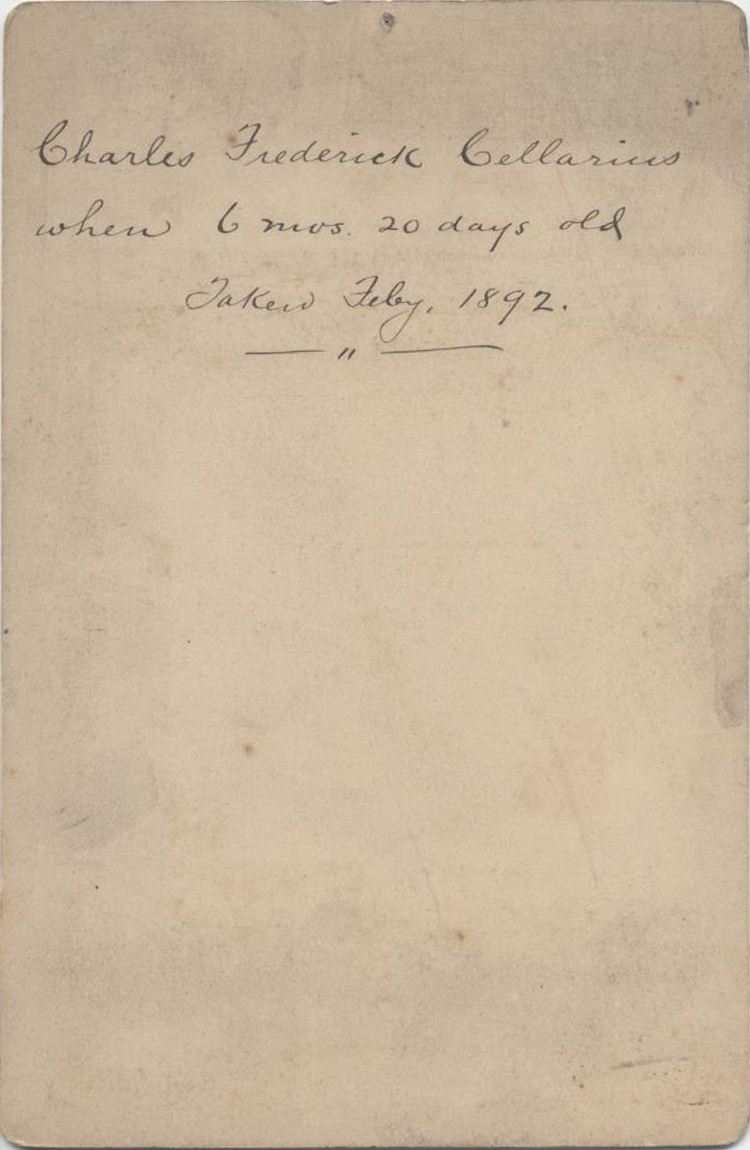 Charles Frederick Cellarius
when 6 mos. 20 days old
Taken Feby, 1892.
— " —